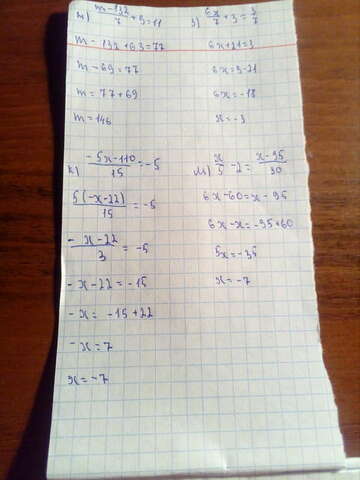 и) (m-132)/7 + 9 = 11
m - 132 + 63 = 77
m - 69 = 77
m = 77 + 69
m = 146
з) 6x/7 + 3 = 3/7
6x + 21 = 3
6x = 3 - 21
6x = -18
x = -3
к) (-5x - 110)/15 = -5
5(-x - 22)/15 = -5
(-x - 22)/3 = -5
-x - 22 = -15
-x = -15 + 22
-x = 7
x = -7
x/5 - 2 = (x - 95)/30
6x - 60 = x - 95
6x - x = -95 + 60
5x = -35
x = -7